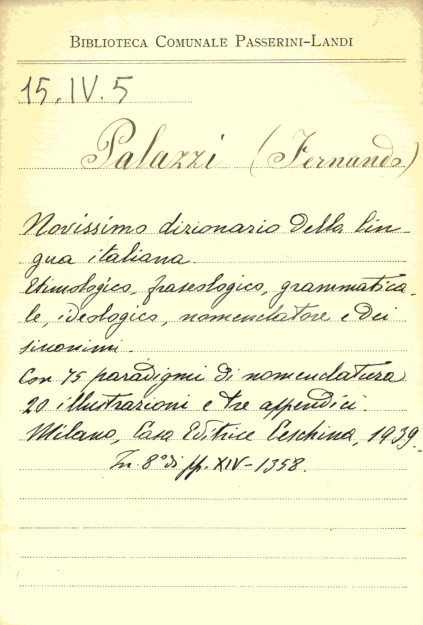 BIBLIOTECA COMUNALE PASSERINI-LANDI
15. IV. 5
Palazzi (Fernando)
Novissimo dizionario della lin-
gua italiana.
Etimologico, fraseologico, grammatica-
le, ideologico, nomenclatore e dei
sinonimi.
Con 75 paradigmi di nomenclatura
20 illustrazioni e tre appendici.
Milano, Casa Editrice Ceschina, 1939.
In 8° di pp. XIV-1358.